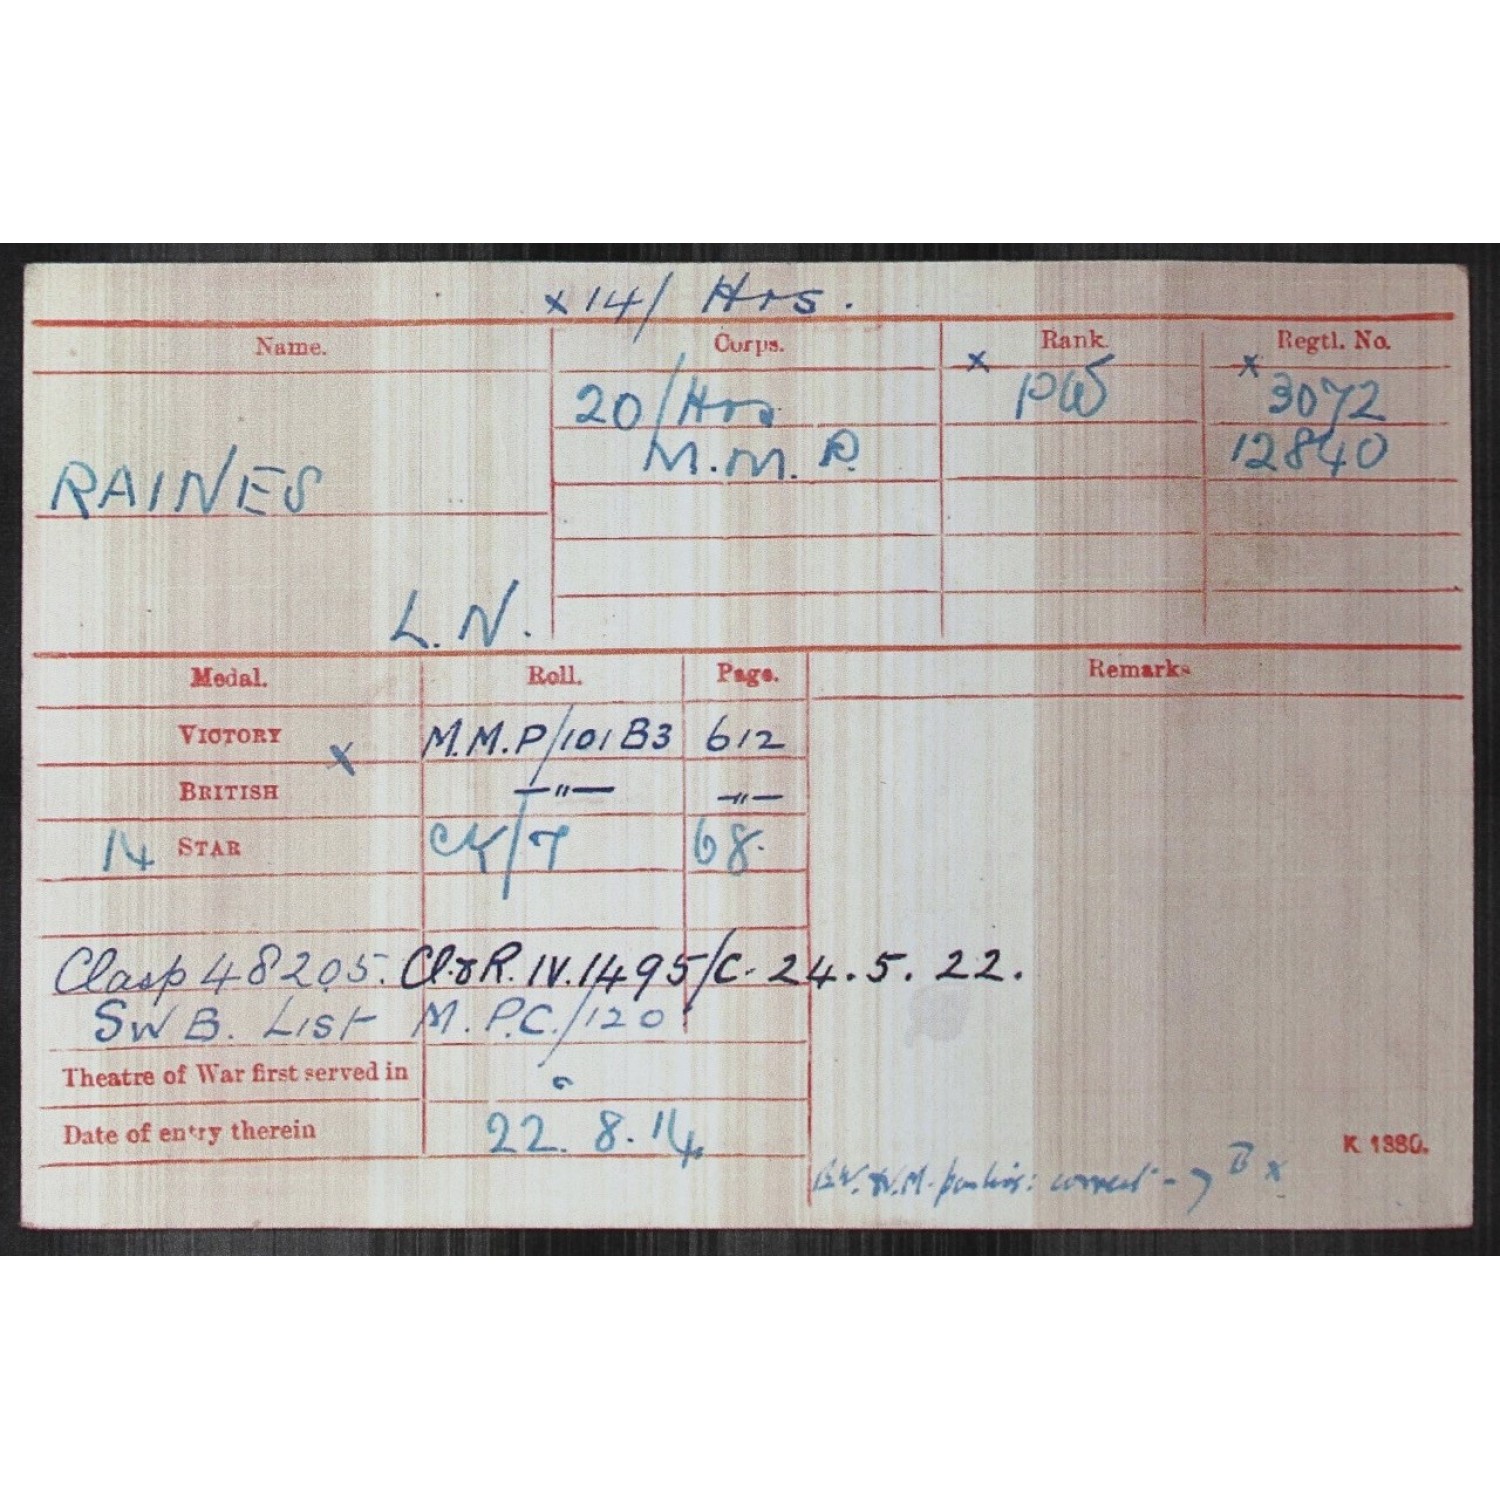 x 14/ Hrs.
Name. Corps. Rank. Regtl. No.
20/Hrs x x 3072
M.M.P. 12840
RAINES
L. N.
Medal. Roll. Page. Remarks
VICTORY x M.M.P/101B3 612
BRITISH —"— —"—
14 STAR CK/7 68.
Clasp 48205. Cl.&R. IV. 1495/C. 24.5.22.
SWB. List M.P.C./120
Theatre of War first served in
Date of entry therein 22. 8. 14.
K 1380.
B.W. & V.M. correct - B x